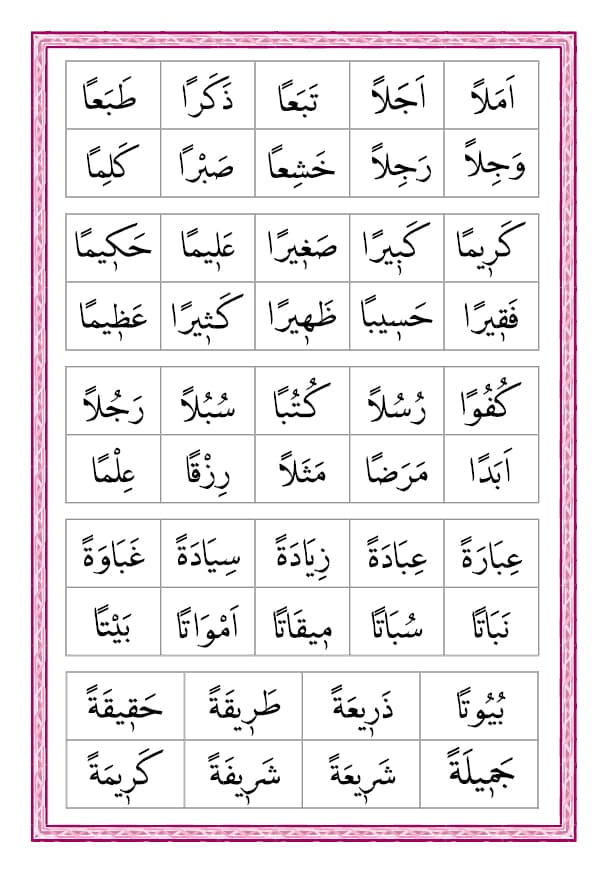 اَمَلاً اَجَلاً تَبَعاً ذَكَرًا طَبَعاً
وَجِلاً رَجِلاً خَشِعاً صَبْرًا كَلِمًا
كَرِيمًا كَبِيرًا صَغِيرًا عَلِيمًا حَكِيمًا
فَقِيرًا حَسِيبًا ظَهِيرًا كَثِيرًا عَظِيمًا
كُفُوًا رُسُلاً كُتُبًا سُبُلاً رَجُلاً
اَبَدًا مَرَضًا مَثَلاً رِزْقًا عِلْمًا
عِبَارَةً عِبَادَةً زِيَادَةً سِيَادَةً غَبَاوَةً
نَبَاتًا سُبَاتًا مِيقَاتًا اَمْوَاتًا بَيْتًا
بُيُوتًا ذَرِيعَةً طَرِيقَةً حَقِيقَةً
جَمِيلَةً شَرِيعَةً شَرِيفَةً كَرِيمَةً